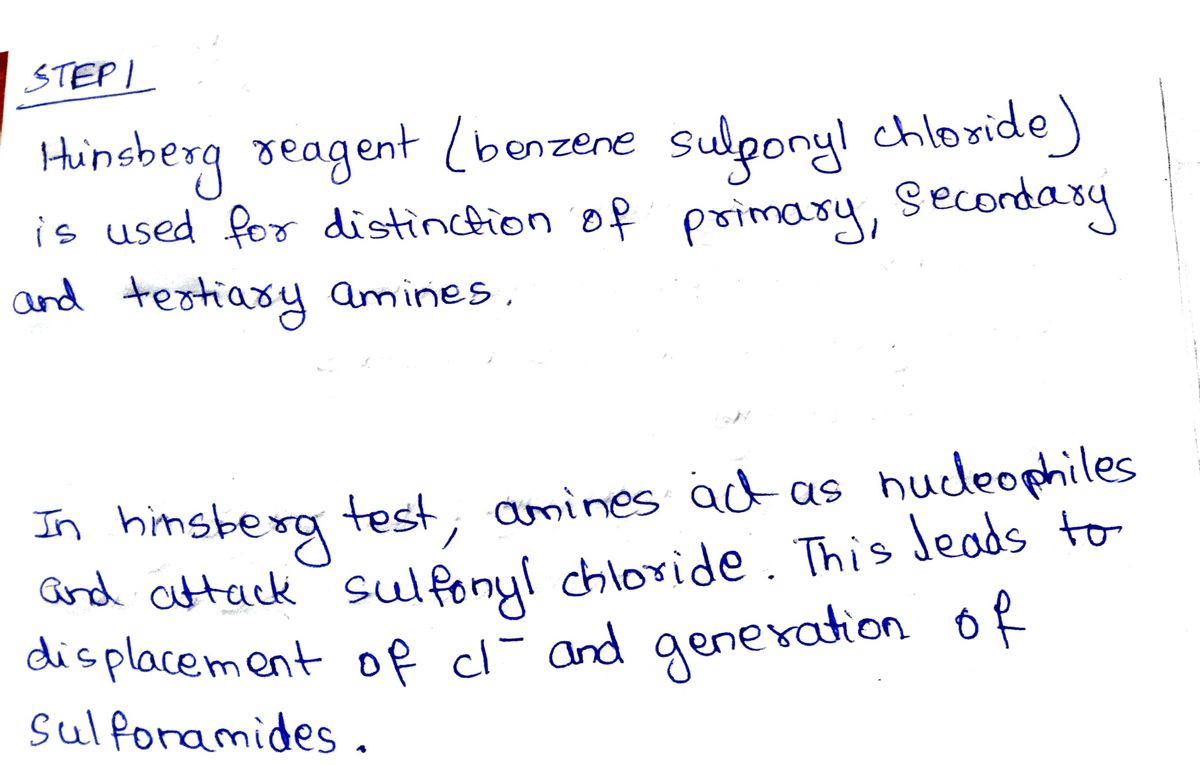 STEP 1
Hinsberg reagent (benzene sulponyl chloride)
is used for distinction of primary, Secondary
and tertiary amines.
In hinsberg test, amines act as nucleophiles
and attack sulfonyl chloride. This leads to
displacement of cl⁻ and generation of
sulfonamides.